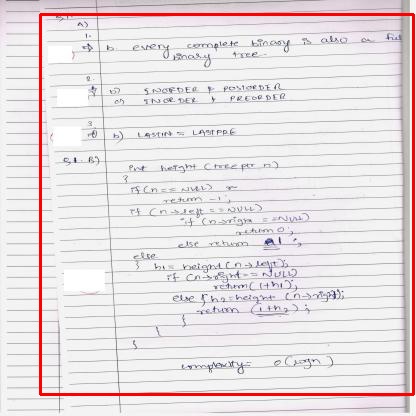 A)
1.
b. every complete binary is also a full
binary tree.
2.
b) INORDER & POSTORDER
c) INORDER & PREORDER
3
b) LASTIN = LASTPRE
B)
int height (treeptr n)
{
if (n == NULL)
return -1;
if (n→left == NULL)
if (n→right == NULL)
return 0;
else return 1;
else
{ h1 = height (n→left);
if (n→right == NULL)
return (1+h1);
else { h2 = height (n→right);
return (1+h2);
}
}
}
complexity = O(logn)